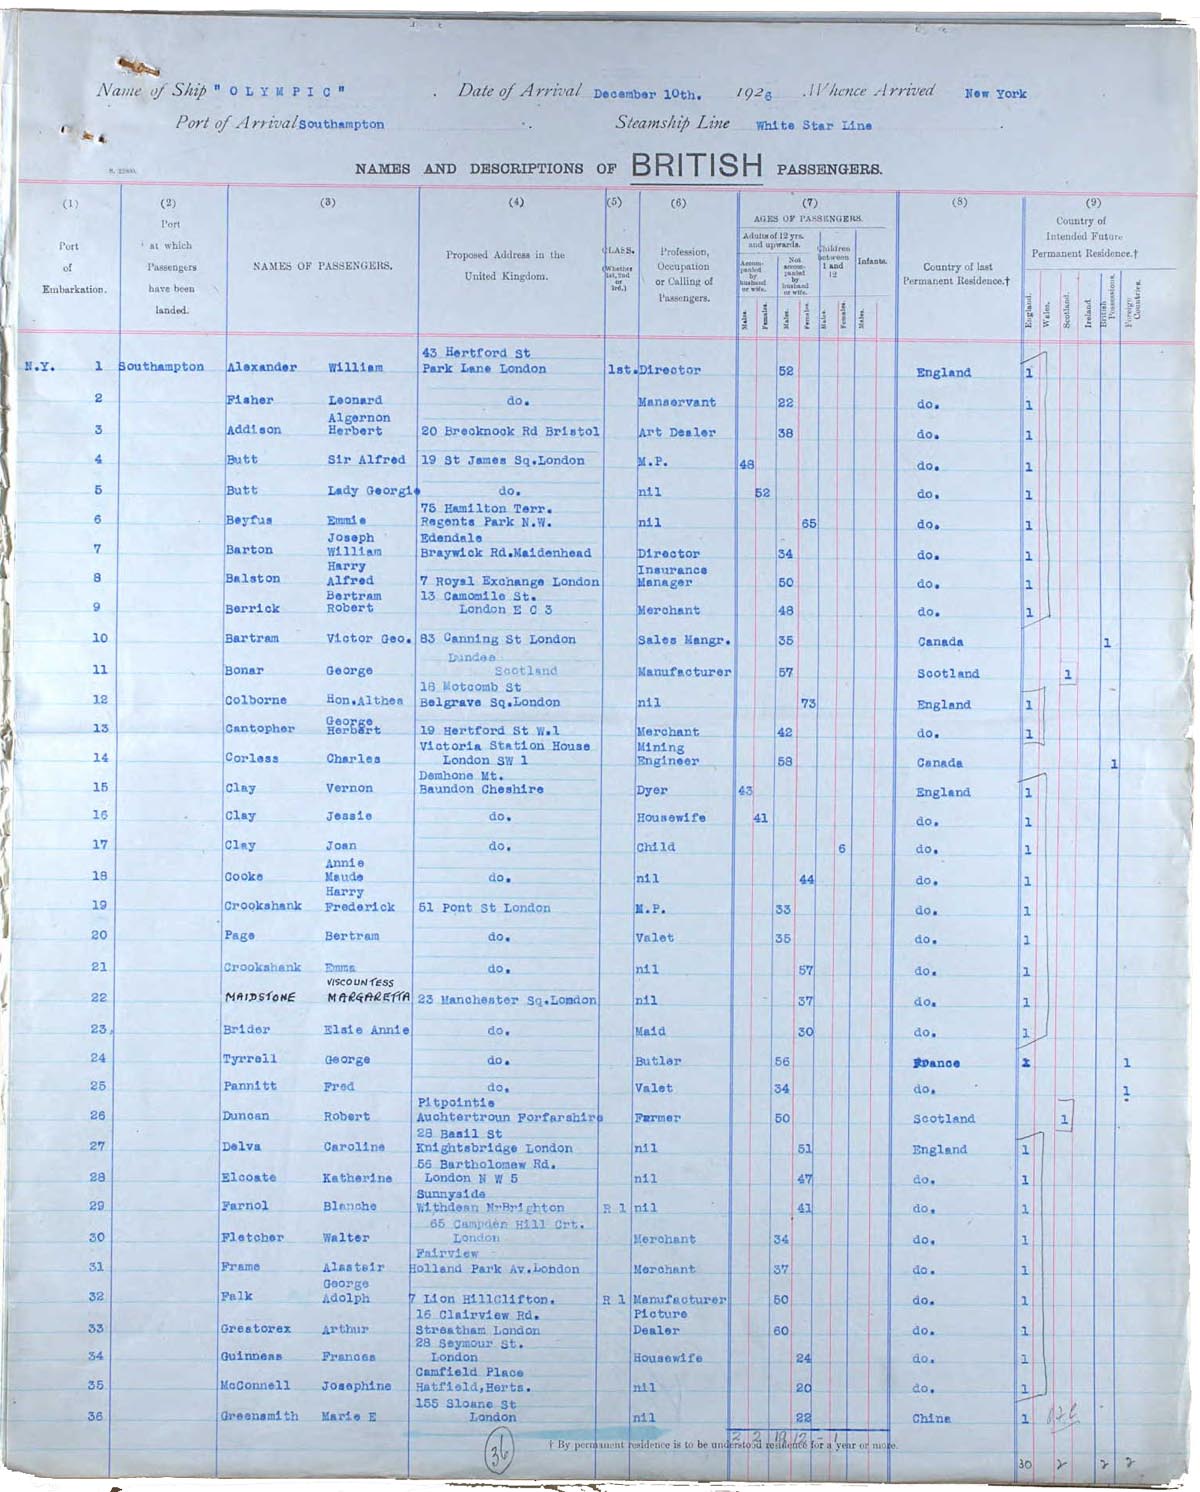 Name of Ship "OLYMPIC" . Date of Arrival December 10th. 1926 .Whence Arrived New York
Port of Arrival Southampton Steamship Line White Star Line
NAMES AND DESCRIPTIONS OF BRITISH PASSENGERS.
(1) (2) (3) (4) (5) (6) (7) (8) (9)
Port of Embarkation.
Port at which Passengers have been landed.
NAMES OF PASSENGERS.
Proposed Address in the United Kingdom.
CLASS. (Whether 1st, 2nd or 3rd.)
Profession, Occupation or Calling of Passengers.
AGES OF PASSENGERS.
Adults of 12 yrs. and upwards.
Accompanied by husband or wife.
Not accompanied by husband or wife.
Children between 1 and 12
Infants.
Males. Females. Males. Females. Males. Females. Males.
Country of last Permanent Residence.†
Country of Intended Future Permanent Residence.†
England. Wales. Scotland. Ireland. British Possessions. Foreign Countries.
43 Hertford St
N.Y. 1 Southampton Alexander William Park Lane London 1st. Director 52 England 1
2 Fisher Leonard do. Manservant 22 do. 1
Algernon
3 Addison Herbert 20 Brecknock Rd Bristol Art Dealer 38 do. 1
4 Butt Sir Alfred 19 St James Sq.London M.P. 48 do. 1
5 Butt Lady Georgie do. nil 52 do. 1
75 Hamilton Terr.
6 Beyfus Emmie Regents Park N.W. nil 65 do. 1
Joseph Edendale
7 Barton William Braywick Rd.Maidenhead Director 34 do. 1
Harry Insurance
8 Balston Alfred 7 Royal Exchange London Manager 50 do. 1
Bertram 13 Camomile St.
9 Berrick Robert London E C 3 Merchant 48 do. 1
10 Bartram Victor Geo. 83 Canning St London Sales Mangr. 35 Canada 1
Dundee
11 Bonar George Scotland Manufacturer 57 Scotland 1
18 Motcomb St
12 Colborne Hon.Althea Belgrave Sq.London nil 73 England 1
George
13 Cantopher Herbert 19 Hertford St W.1 Merchant 42 do. 1
Victoria Station House Mining
14 Corless Charles London SW 1 Engineer 58 Canada 1
Demhone Mt.
15 Clay Vernon Baundon Cheshire Dyer 43 England 1
16 Clay Jessie do. Housewife 41 do. 1
17 Clay Joan do. Child 6 do. 1
Annie
18 Cooke Maude do. nil 44 do. 1
Harry
19 Crookshank Frederick 51 Pont St London M.P. 33 do. 1
20 Page Bertram do. Valet 35 do. 1
21 Crookshank Emma do. nil 57 do. 1
VISCOUNTESS
22 MAIDSTONE MARGARETTA 23 Manchester Sq.London nil 37 do. 1
23 Brider Elsie Annie do. Maid 30 do. 1
24 Tyrrell George do. Butler 56 France 1
25 Pannitt Fred do. Valet 34 do. 1
Pitpointie
26 Duncan Robert Auchtertroun Forfarshire Farmer 50 Scotland 1
28 Basil St
27 Delva Caroline Knightsbridge London nil 51 England 1
56 Bartholomew Rd.
28 Elcoate Katherine London N W 5 nil 47 do. 1
Sunnyside
29 Farnol Blanche Withdean NrBrighton R 1 nil 41 do. 1
65 Campden Hill Crt.
30 Fletcher Walter London Merchant 34 do. 1
Fairview
31 Frame Alastair Holland Park Av.London Merchant 37 do. 1
George
32 Falk Adolph 7 Lion HillClifton. R 1 Manufacturer 50 do. 1
16 Clairview Rd. Picture
33 Greatorex Arthur Streatham London Dealer 60 do. 1
28 Seymour St.
34 Guinness Frances London Housewife 24 do. 1
Camfield Place
35 McConnell Josephine Hatfield,Herts. nil 20 do. 1
155 Sloane St
36 Greensmith Marie E London nil 22 China 1
2 2 19 12 - 1
36 † By permanent residence is to be understood residence for a year or more.
30 2 2 2